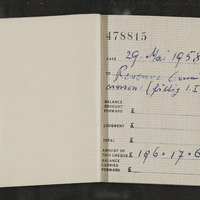 478815
DATE 29. Mai 1958
TO Revenue Comm
BALANCE
BROUGHT
FORWARD £
LODGMENT £
TOTAL £
AMOUNT OF
THIS CHEQUE £ 196.17.6
BALANCE
CARRIED
FORWARD £